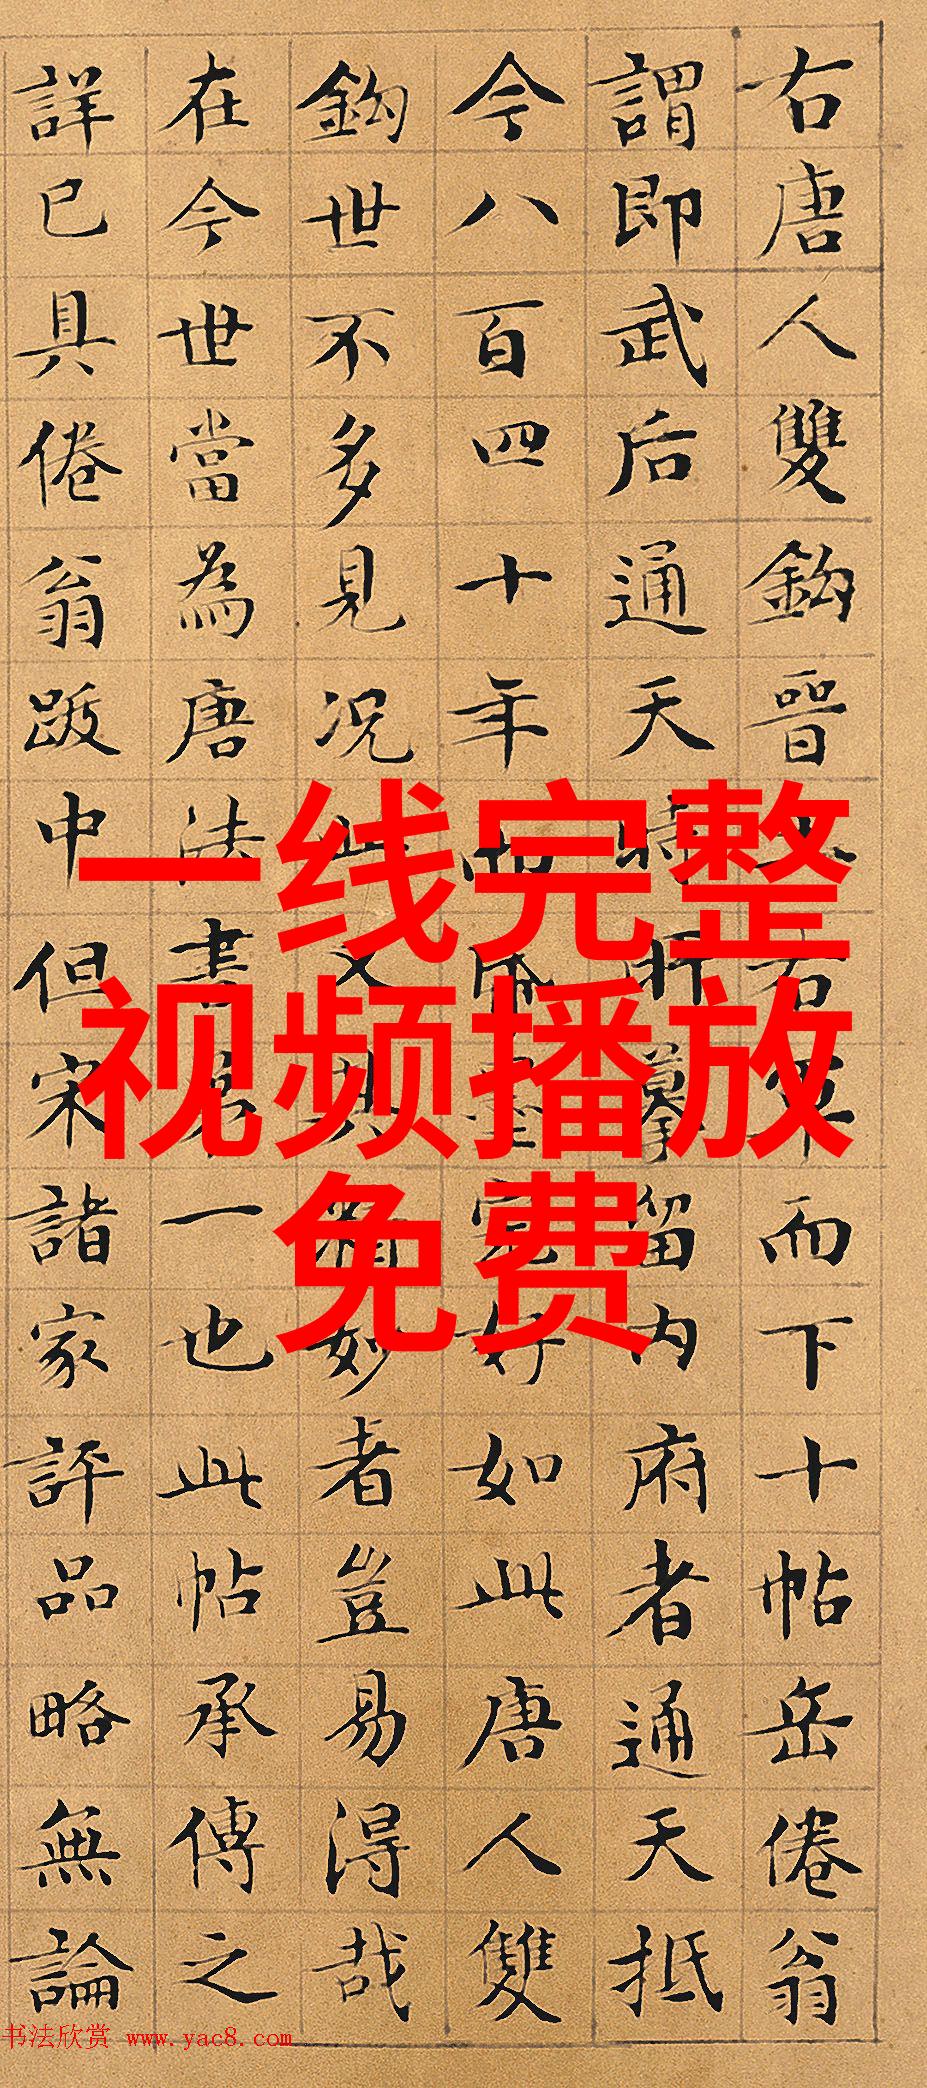 右唐人雙鈎晉右軍而下十帖岳倦翁
謂即武后通天時所摹留内府者通天抵
今八百四十年好如此唐人雙
鈎世不多見况此又其精妙者豈易得哉
在今世當為唐法書第一也此帖承傳之
詳已具倦翁跋中但宋諸家評品略無論
一线完整
视频播放
免费
书法欣赏 www.yac8.com